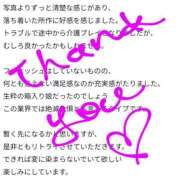 写真よりずっと清楚な感じがあり、
落ち着いた所作に好感を感じました。
トラブルで途中から介護プレイになりましたが、
むしろ良かったかもしれません。
フィニッシュはしていないものの、
何とも言えない満足感なのか充実感がたりました。
生粋の箱入り娘だったのでしょう
この業界では絶滅危惧
タイプです。
暫く先になるかと思いますが、
是非ともリトライさせていただきます。
できれば変に染まらないでいて欲しい
楽しみにしています。
Thank
you